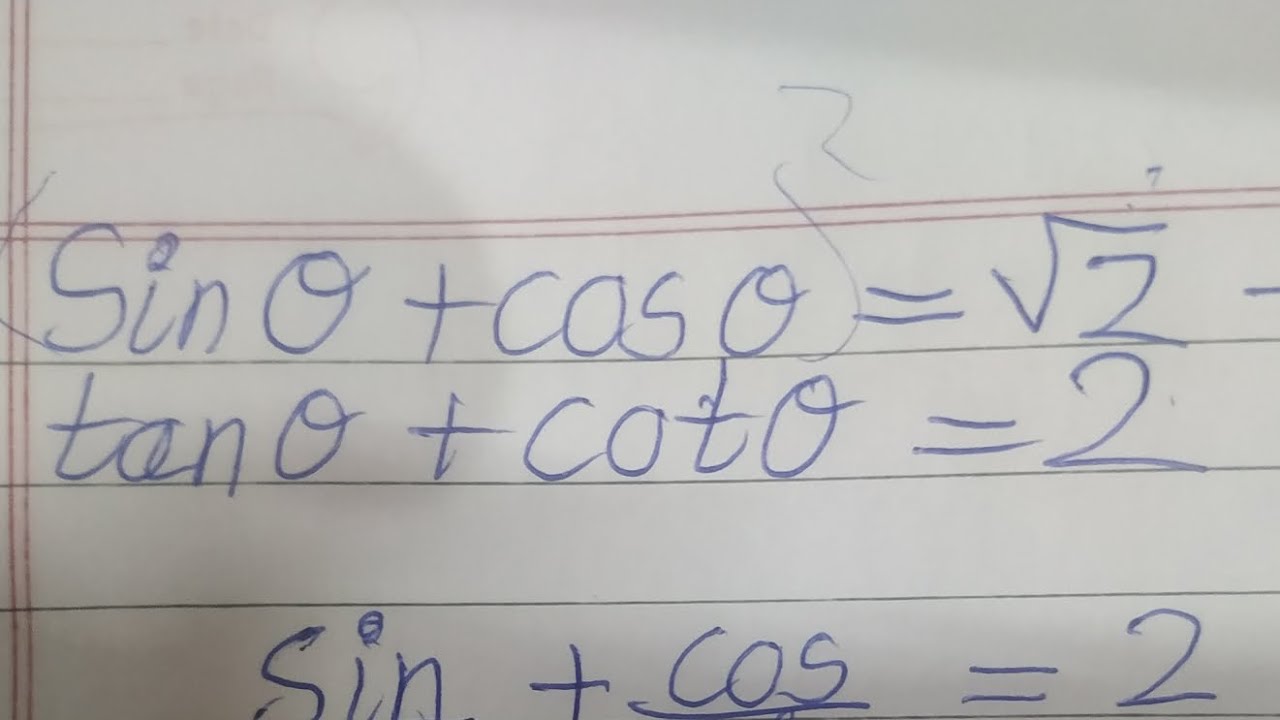 (Sin θ + cos θ)² = √2 -
tan θ + cot θ = 2
sin + cos = 2